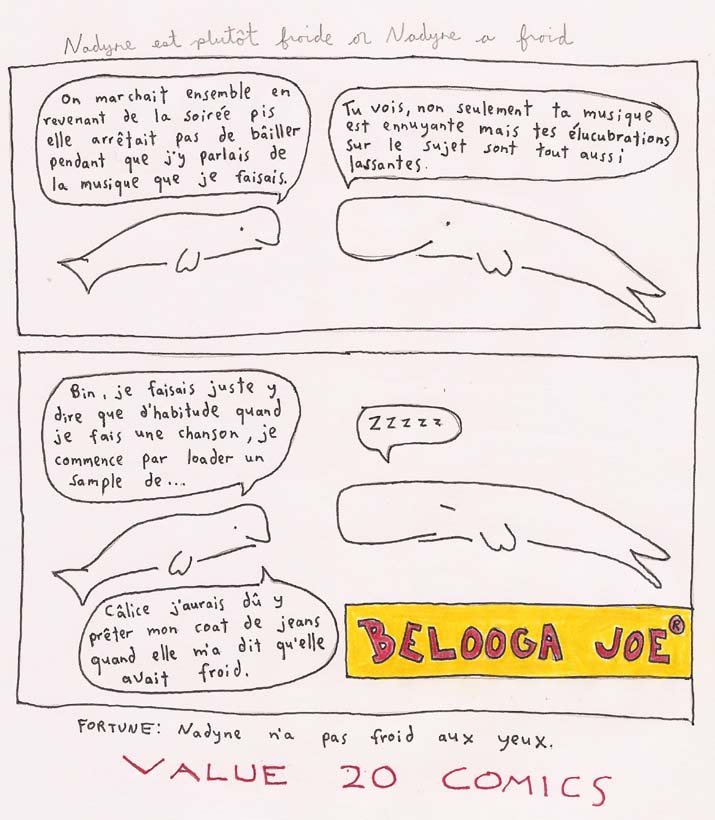 Nadyne est plutôt froide or Nadyne a froid
On marchait ensemble en
revenant de la soirée pis
elle arrêtait pas de bâiller
pendant que j'y parlais de
la musique que je faisais.
Tu vois, non seulement ta musique
est ennuyante mais tes élucubrations
sur le sujet sont tout aussi
lassantes.
Bin, je faisais juste y
dire que d'habitude quand
je fais une chanson, je
commence par loader un
sample de...
Zzzzz
Câlice j'aurais dû y
prêter mon coat de jeans
quand elle m'a dit qu'elle
avait froid.
BELOOGA JOE®
FORTUNE: Nadyne n'a pas froid aux yeux.
VALUE 20 COMICS